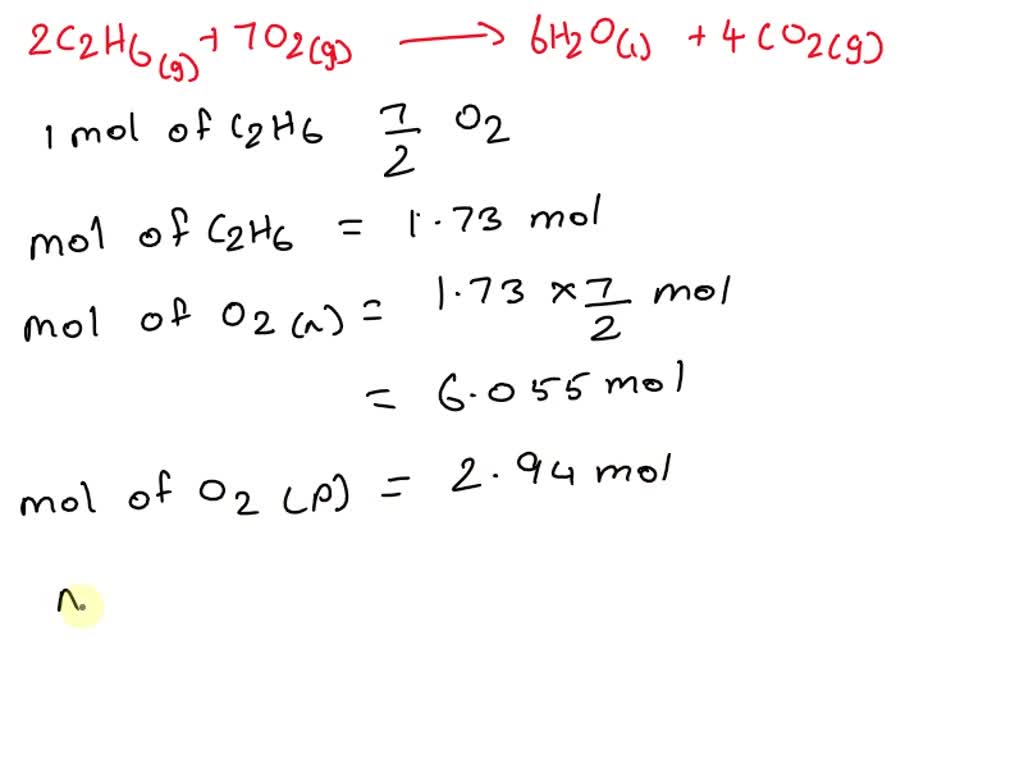 2C2H6(g) + 7O2(g) → 6H2O(l) + 4CO2(g)
1 mol of C2H6 7/2 O2
mol of C2H6 = 1.73 mol
mol of O2(n) = 1.73 × 7/2 mol
= 6.055 mol
mol of O2(p) = 2.94 mol